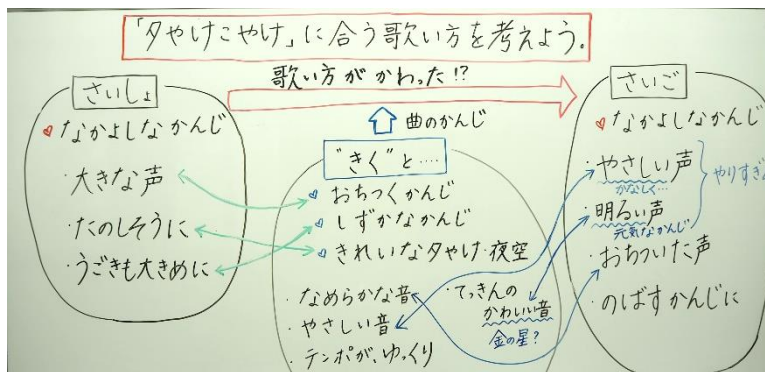 「夕やけこやけ」に合う歌い方を考えよう。
歌い方がかわった!?
さいしょ
なかよしなかんじ
・大きな声
・たのしそうに
・うごきも大きめに
曲のかんじ
"きく"と……
おちつくかんじ
しずかなかんじ
きれいな夕やけ・夜空
・なめらかな音
・やさしい音
・テンポが、ゆっくり
・てっきんの
かわいい音
金の星?
さいご
なかよしなかんじ
・やさしい声
かなしく…
・明るい声
元気なかんじ
やりすぎ
・おちついた声
・のばすかんじに